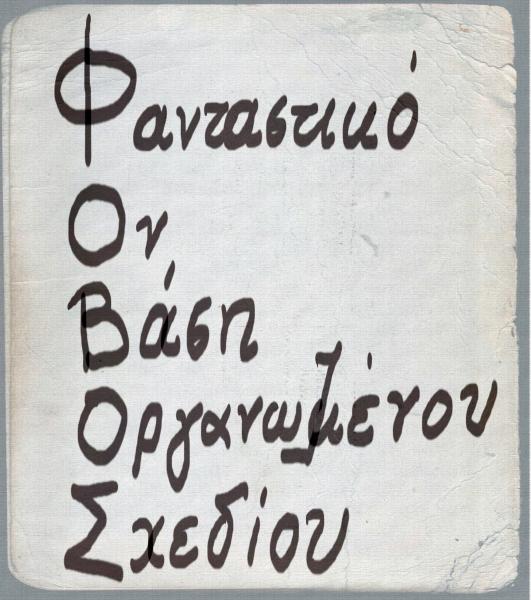 Φανταστικό
Ον
Βάση
Οργανωμένου
Σχεδίου